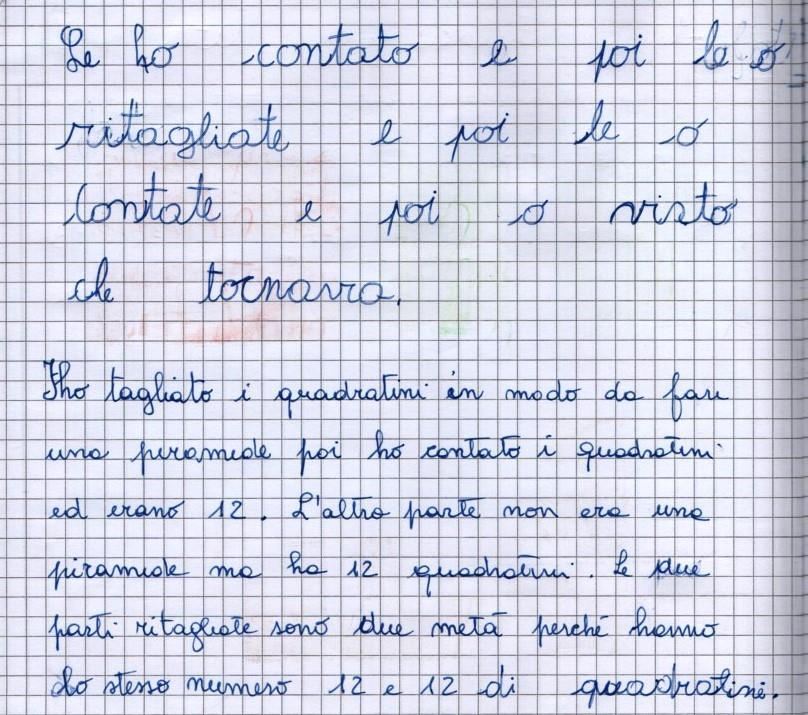 Le ho contato e poi le o
ritagliate e poi le o
Contate e poi o visto
che tornava.
Iho tagliato i quadratini in modo da fare
una piramide poi ho contato i quadratini
ed erano 12. L'altra parte non era una
piramide ma ha 12 quadratini. Le due
parti ritagliate sono due metà perché hanno
lo stesso numero 12 e 12 di quadratini.